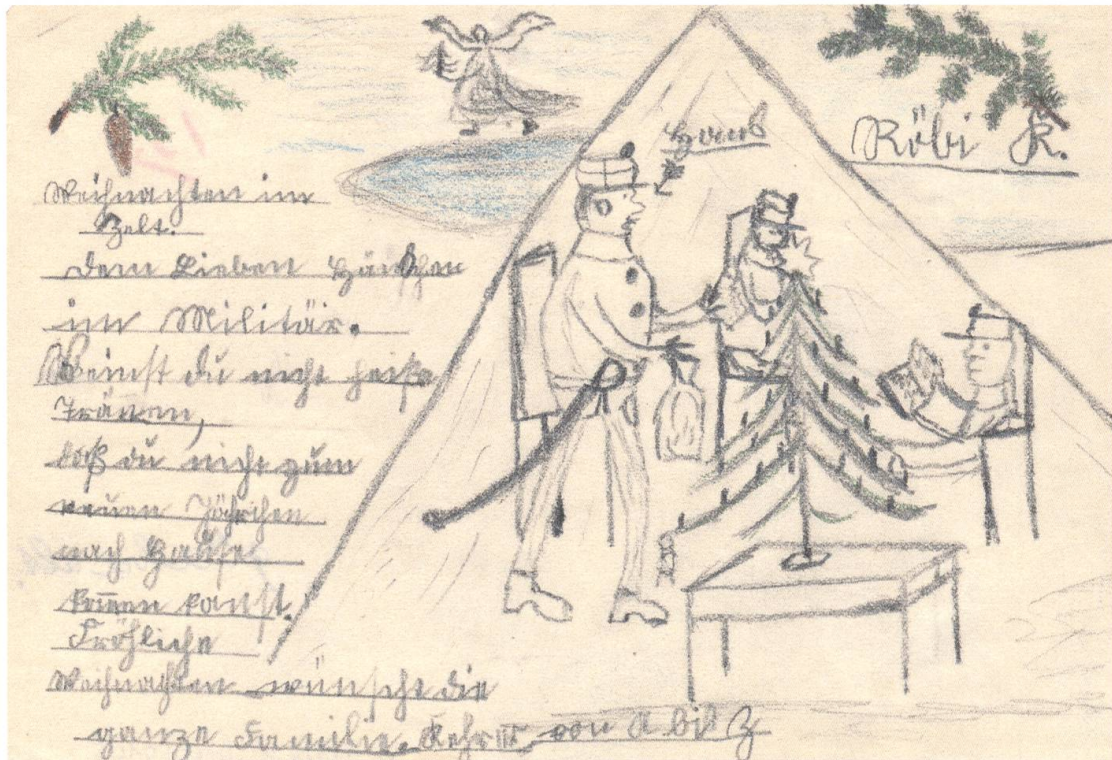 Röbi K.
Hans
Weihnachten im
Zelt.
Dem Lieben Hänschen
im Militär.
Weinst du nicht heiße
Tränen,
daß du nicht zum
neuen Jährchen
nach Hause
komen kanst.
Fröhliche
Weihnachten wünscht die
ganze Familie von A bis Z